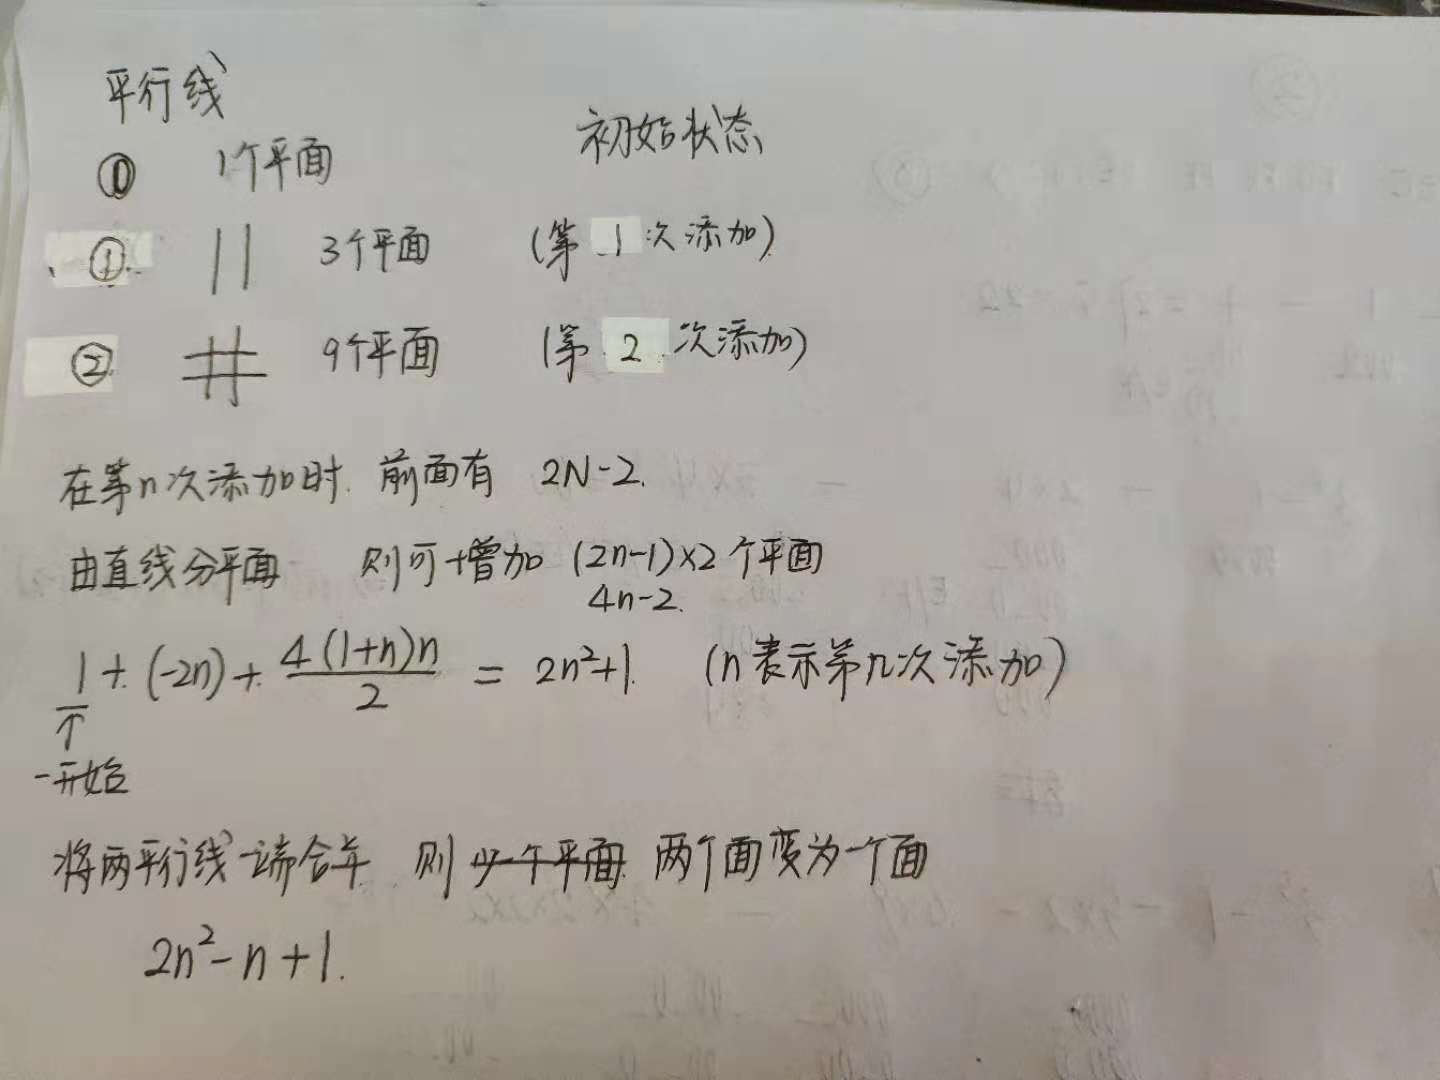 平行线
⓪ 1个平面 初始状态
① || 3个平面 (第1次添加)
② 井 9个平面 (第2次添加)
在第n次添加时. 前面有 2N-2.
由直线分平面 则可增加 (2n-1)×2个平面
4n-2.
1+(-2n)+4(1+n)n/2 = 2n²+1. (n表示第几次添加)
↑
一开始
将两平行线一端合并 则少一个平面 两个面变为一个面
2n²-n+1.